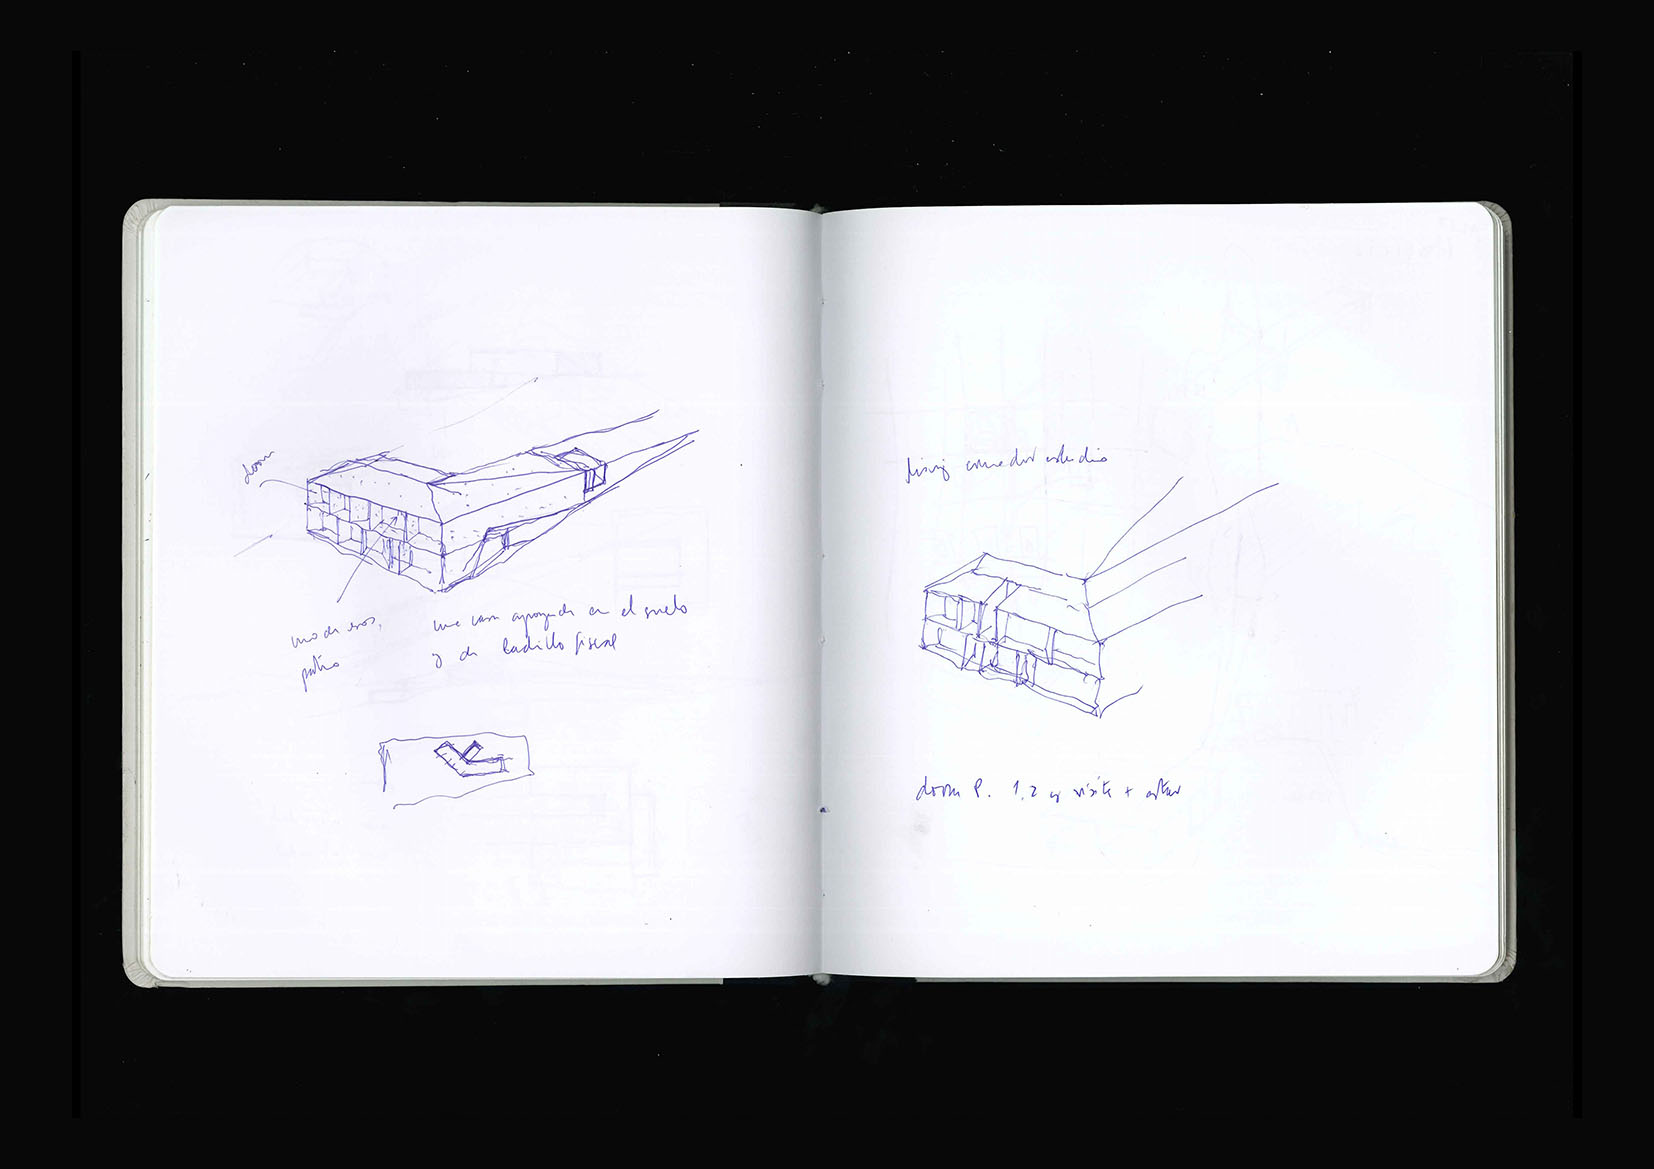 dorm
uno de esos,
patio
una casa apoyada en el suelo
y de ladrillo fiscal
living comedor estudio
dorm P. 1, 2 y visita + estar